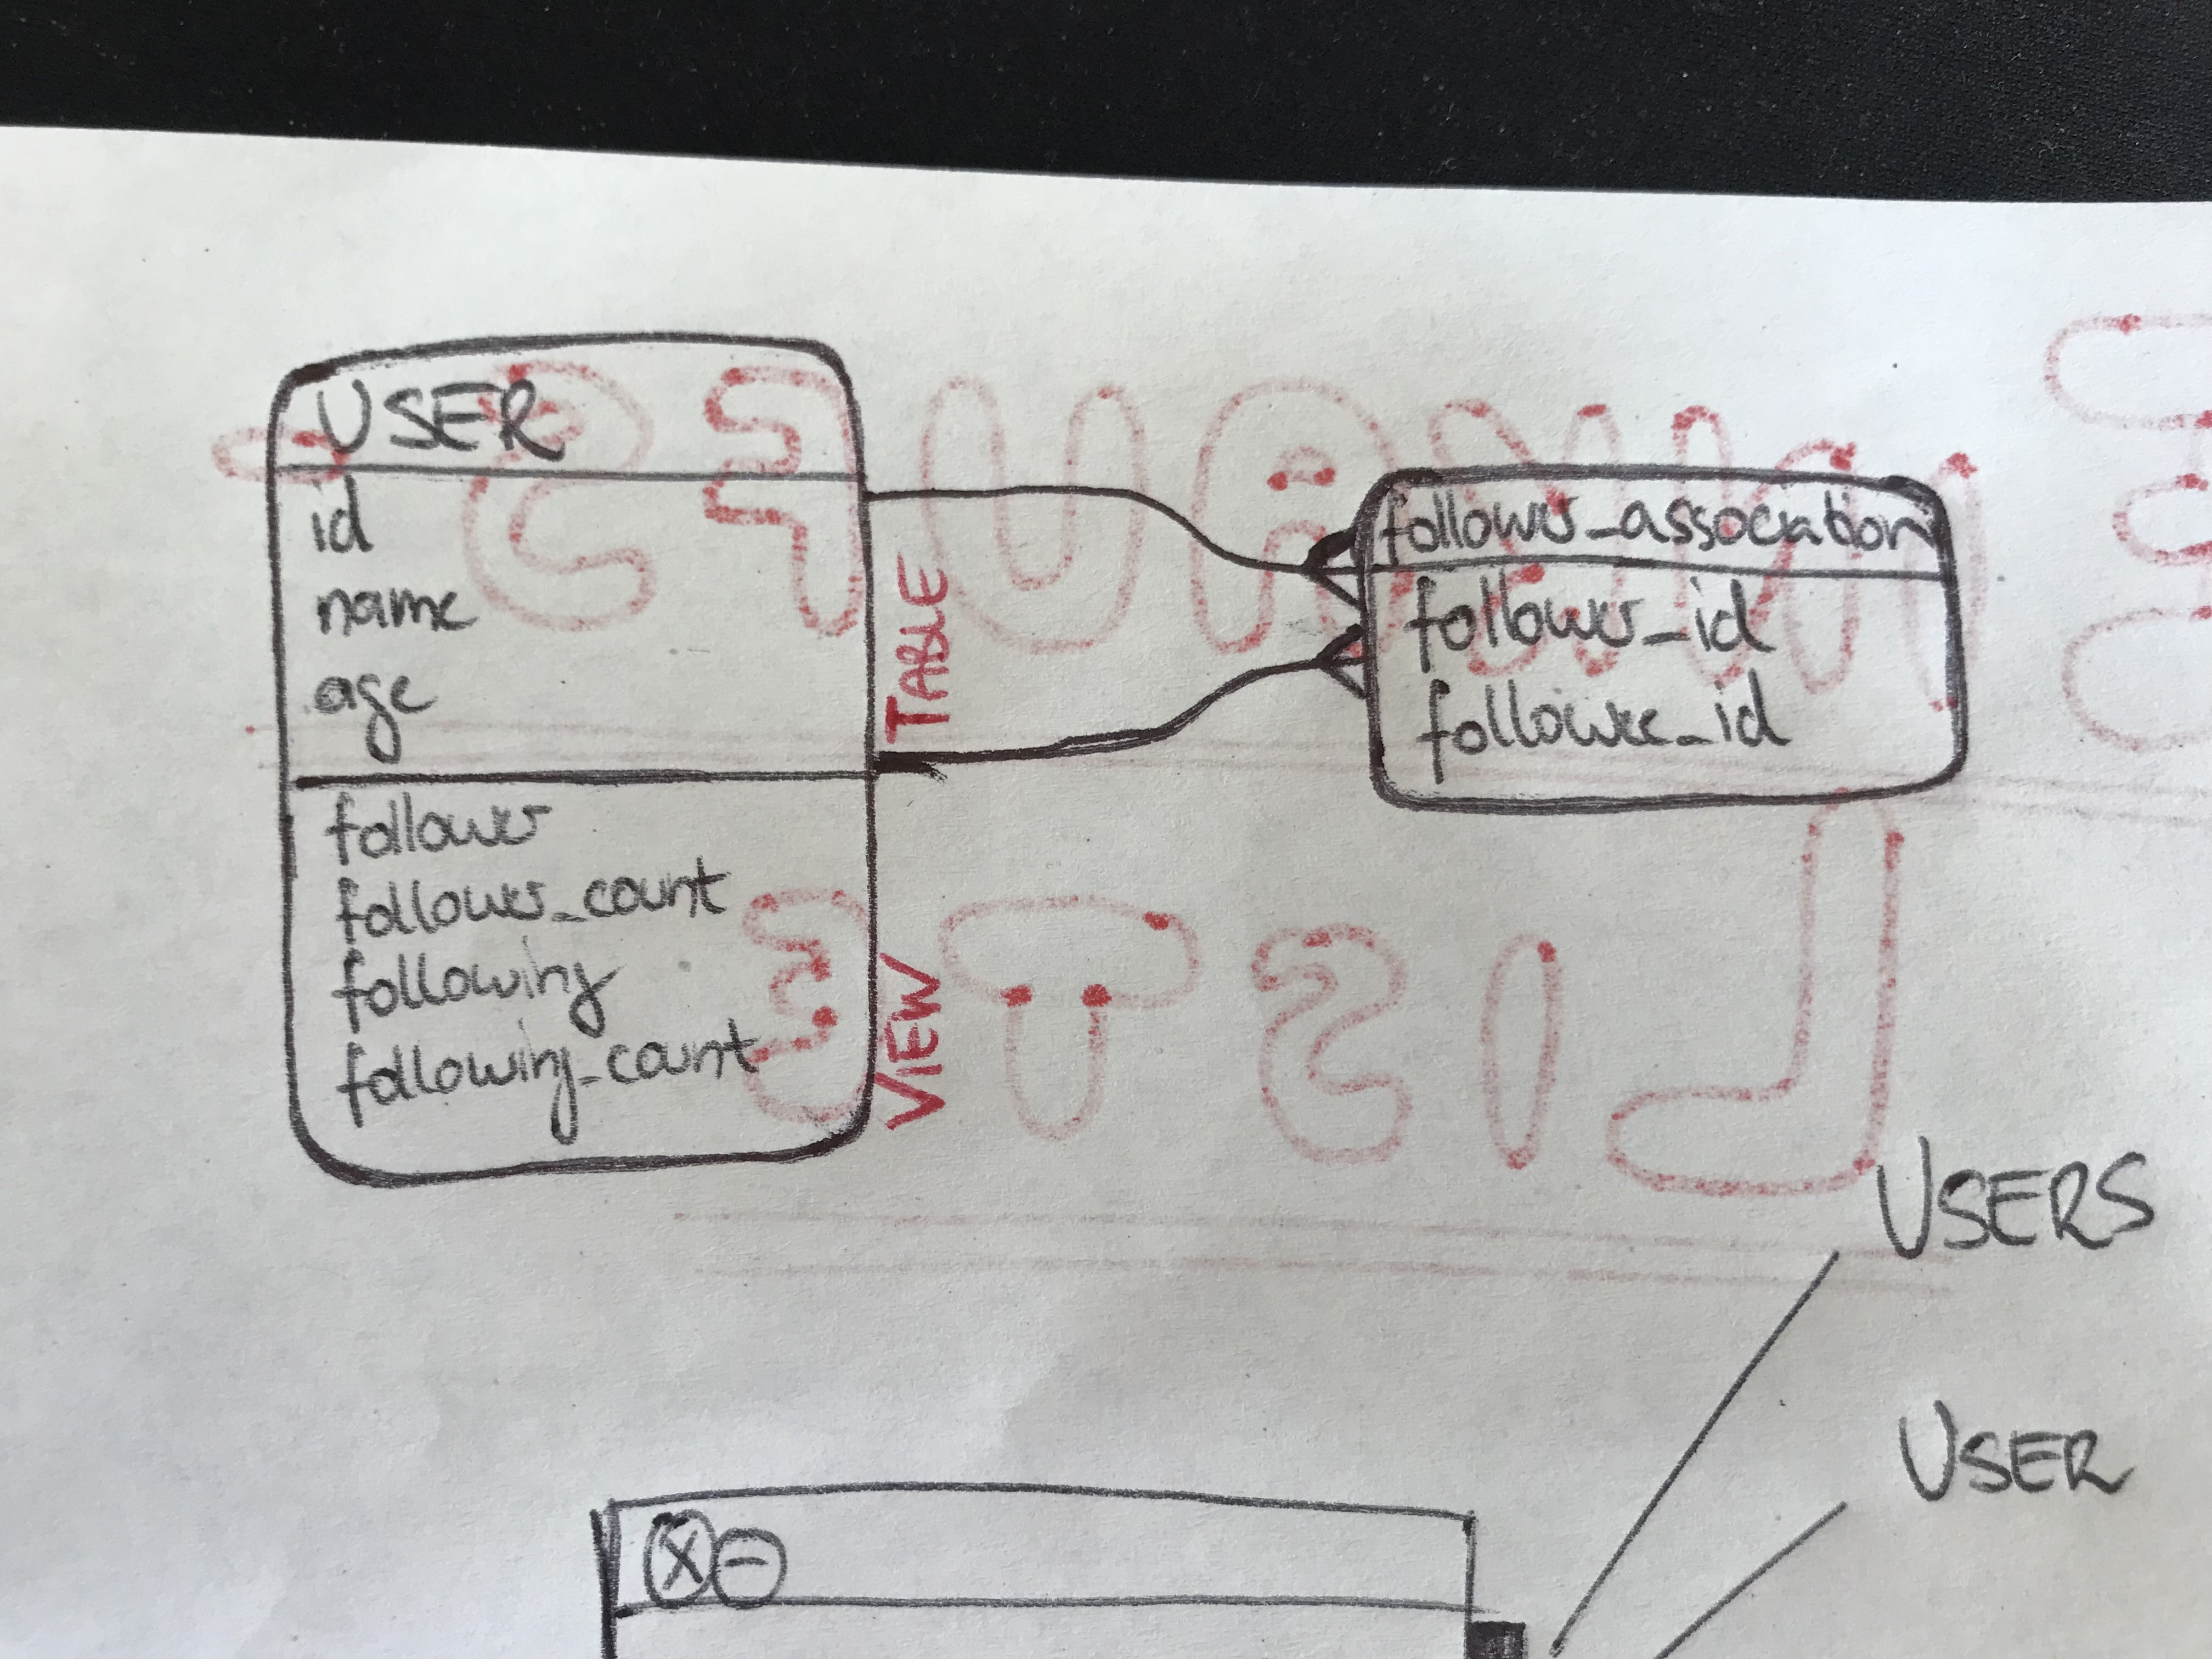 USER
id
name
age
TABLE
follower
follower_count
following
following_count
VIEW
follower_association
follower_id
followee_id
USERS
USER